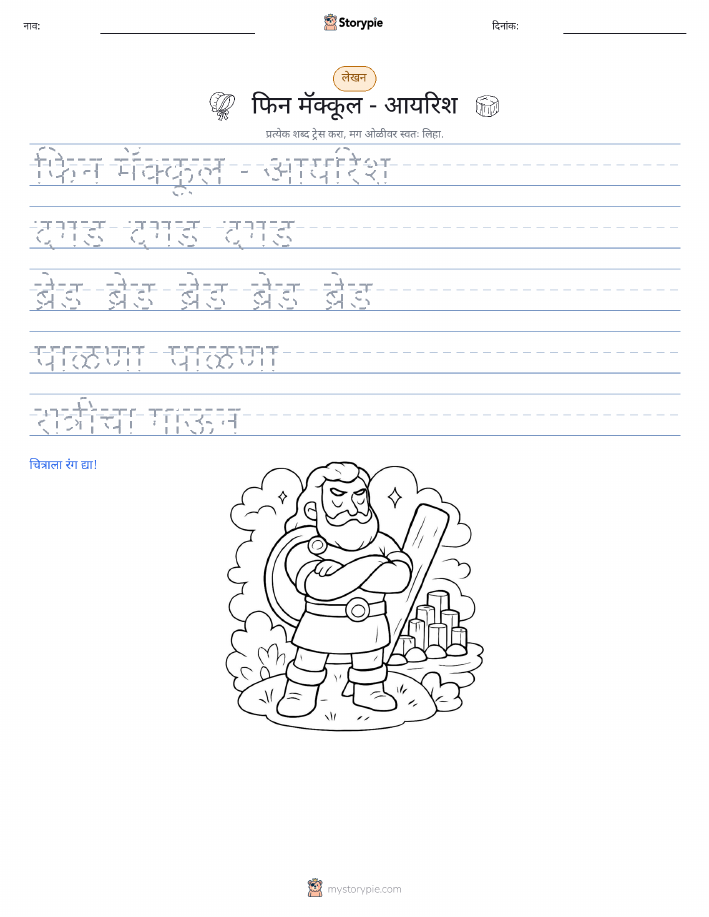 नाव:
Storypie
दिनांक:
लेखन
फिन मॅक्कूल - आयरिश
प्रत्येक शब्द ट्रेस करा, मग ओळीवर स्वतः लिहा.
फिन मॅक्कूल - आयरिश
दगड दगड दगड
ब्रेड ब्रेड ब्रेड ब्रेड ब्रेड
पाळणा पाळणा
रात्रीचा गाऊन
चित्राला रंग द्या!
mystorypie.com